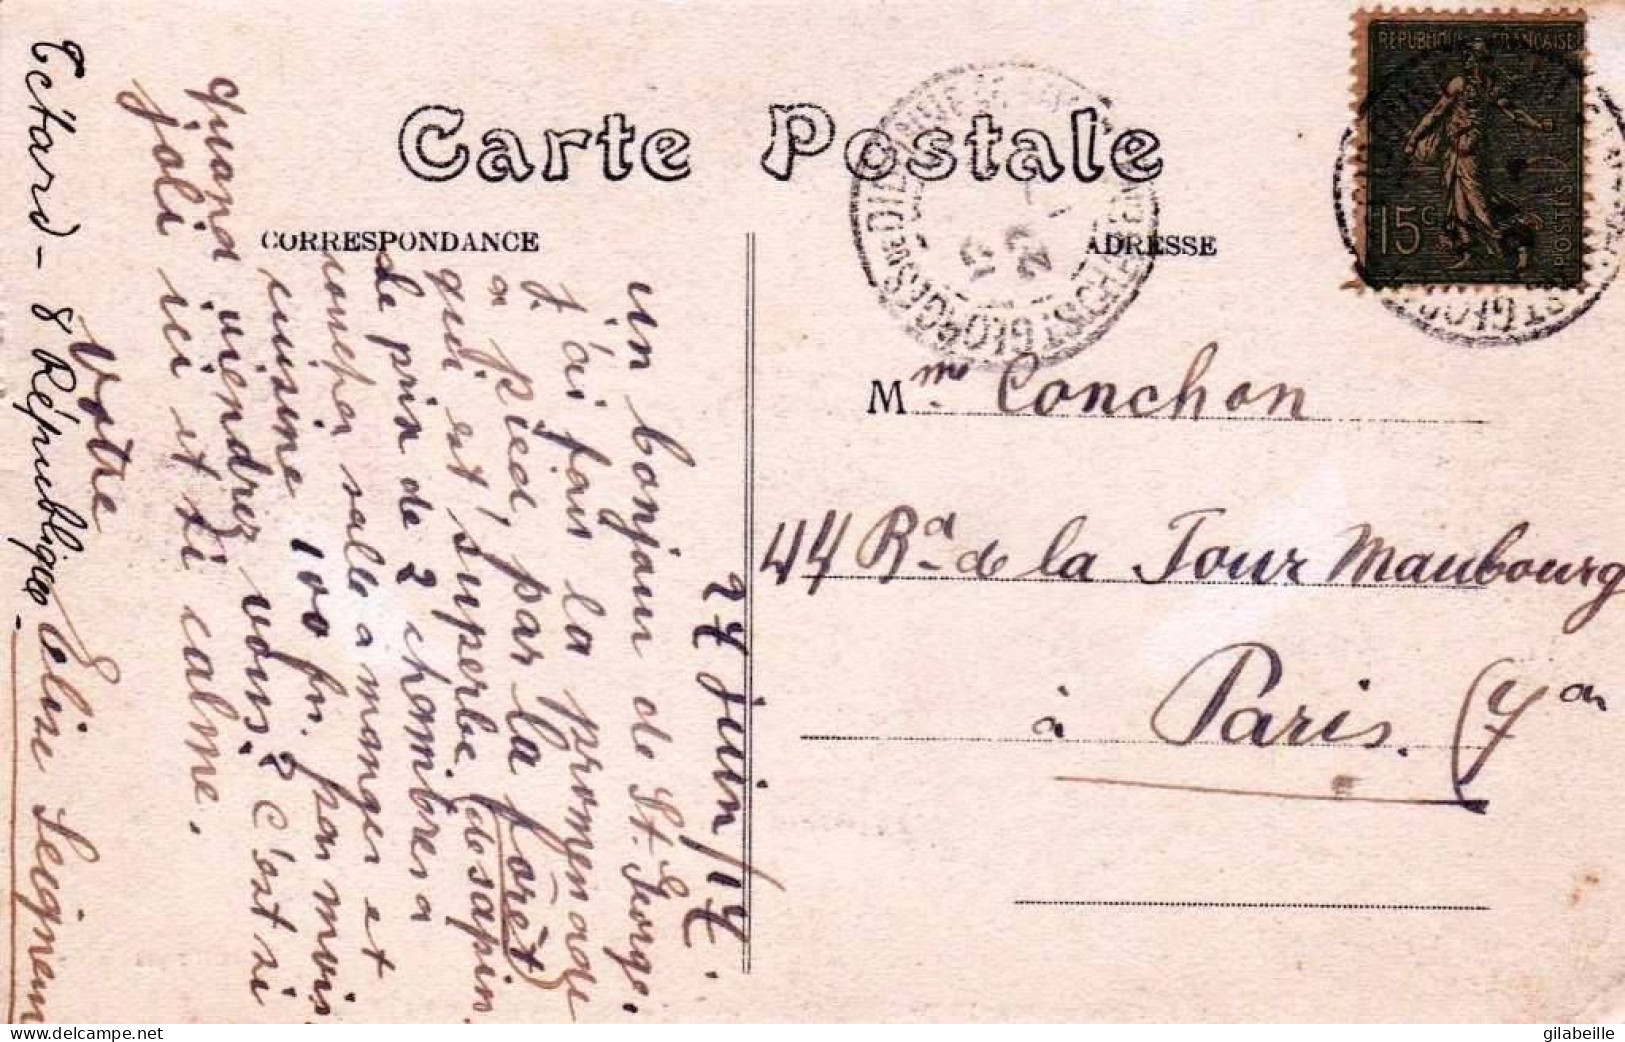 Carte Postale
CORRESPONDANCE
ADRESSE
RÉPUBLIQUE FRANÇAISE
15c
POSTES
27 juin/17
un bonjour de St. Georges.
J'ai fais la promenade
a pied, par la forêt
qui est superbe (de sapin
Le prix de 2 chambres a
coucher salle a manger et
cuisine 100 frs. par mois
quand viendrez vous? C'est si
joli ici et si calme.
Votre
Elise Seigneur
Tétard - 8 République
Mme Conchon
44 Bd de la Tour Maubourg
à Paris. (7em
ST GEORGES
gilabeille